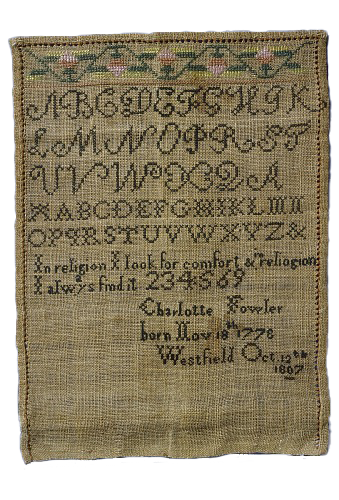 A B C D E F G H I K
L M N O P R S T
U V W X Q A
X A B C D E F G H I K L M N
O P Q R S T U V W X Y Z &
In religion I look for comfort & religion
I alwys find it 2 3 4 5 6 9
Charlotte Fowler
born Nov 18th 1778
Westfield Oct. 12th
1807